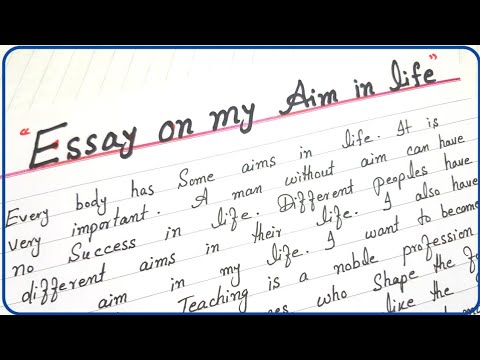 "Essay on my Aim in life"
Every body has Some aims in life. It is
very important. A man without aim can have
no Success in life. Different peoples have
different aims in their life. I also have
aim in my life. I want to become
Teaching is a noble profession
who Shape the
like the